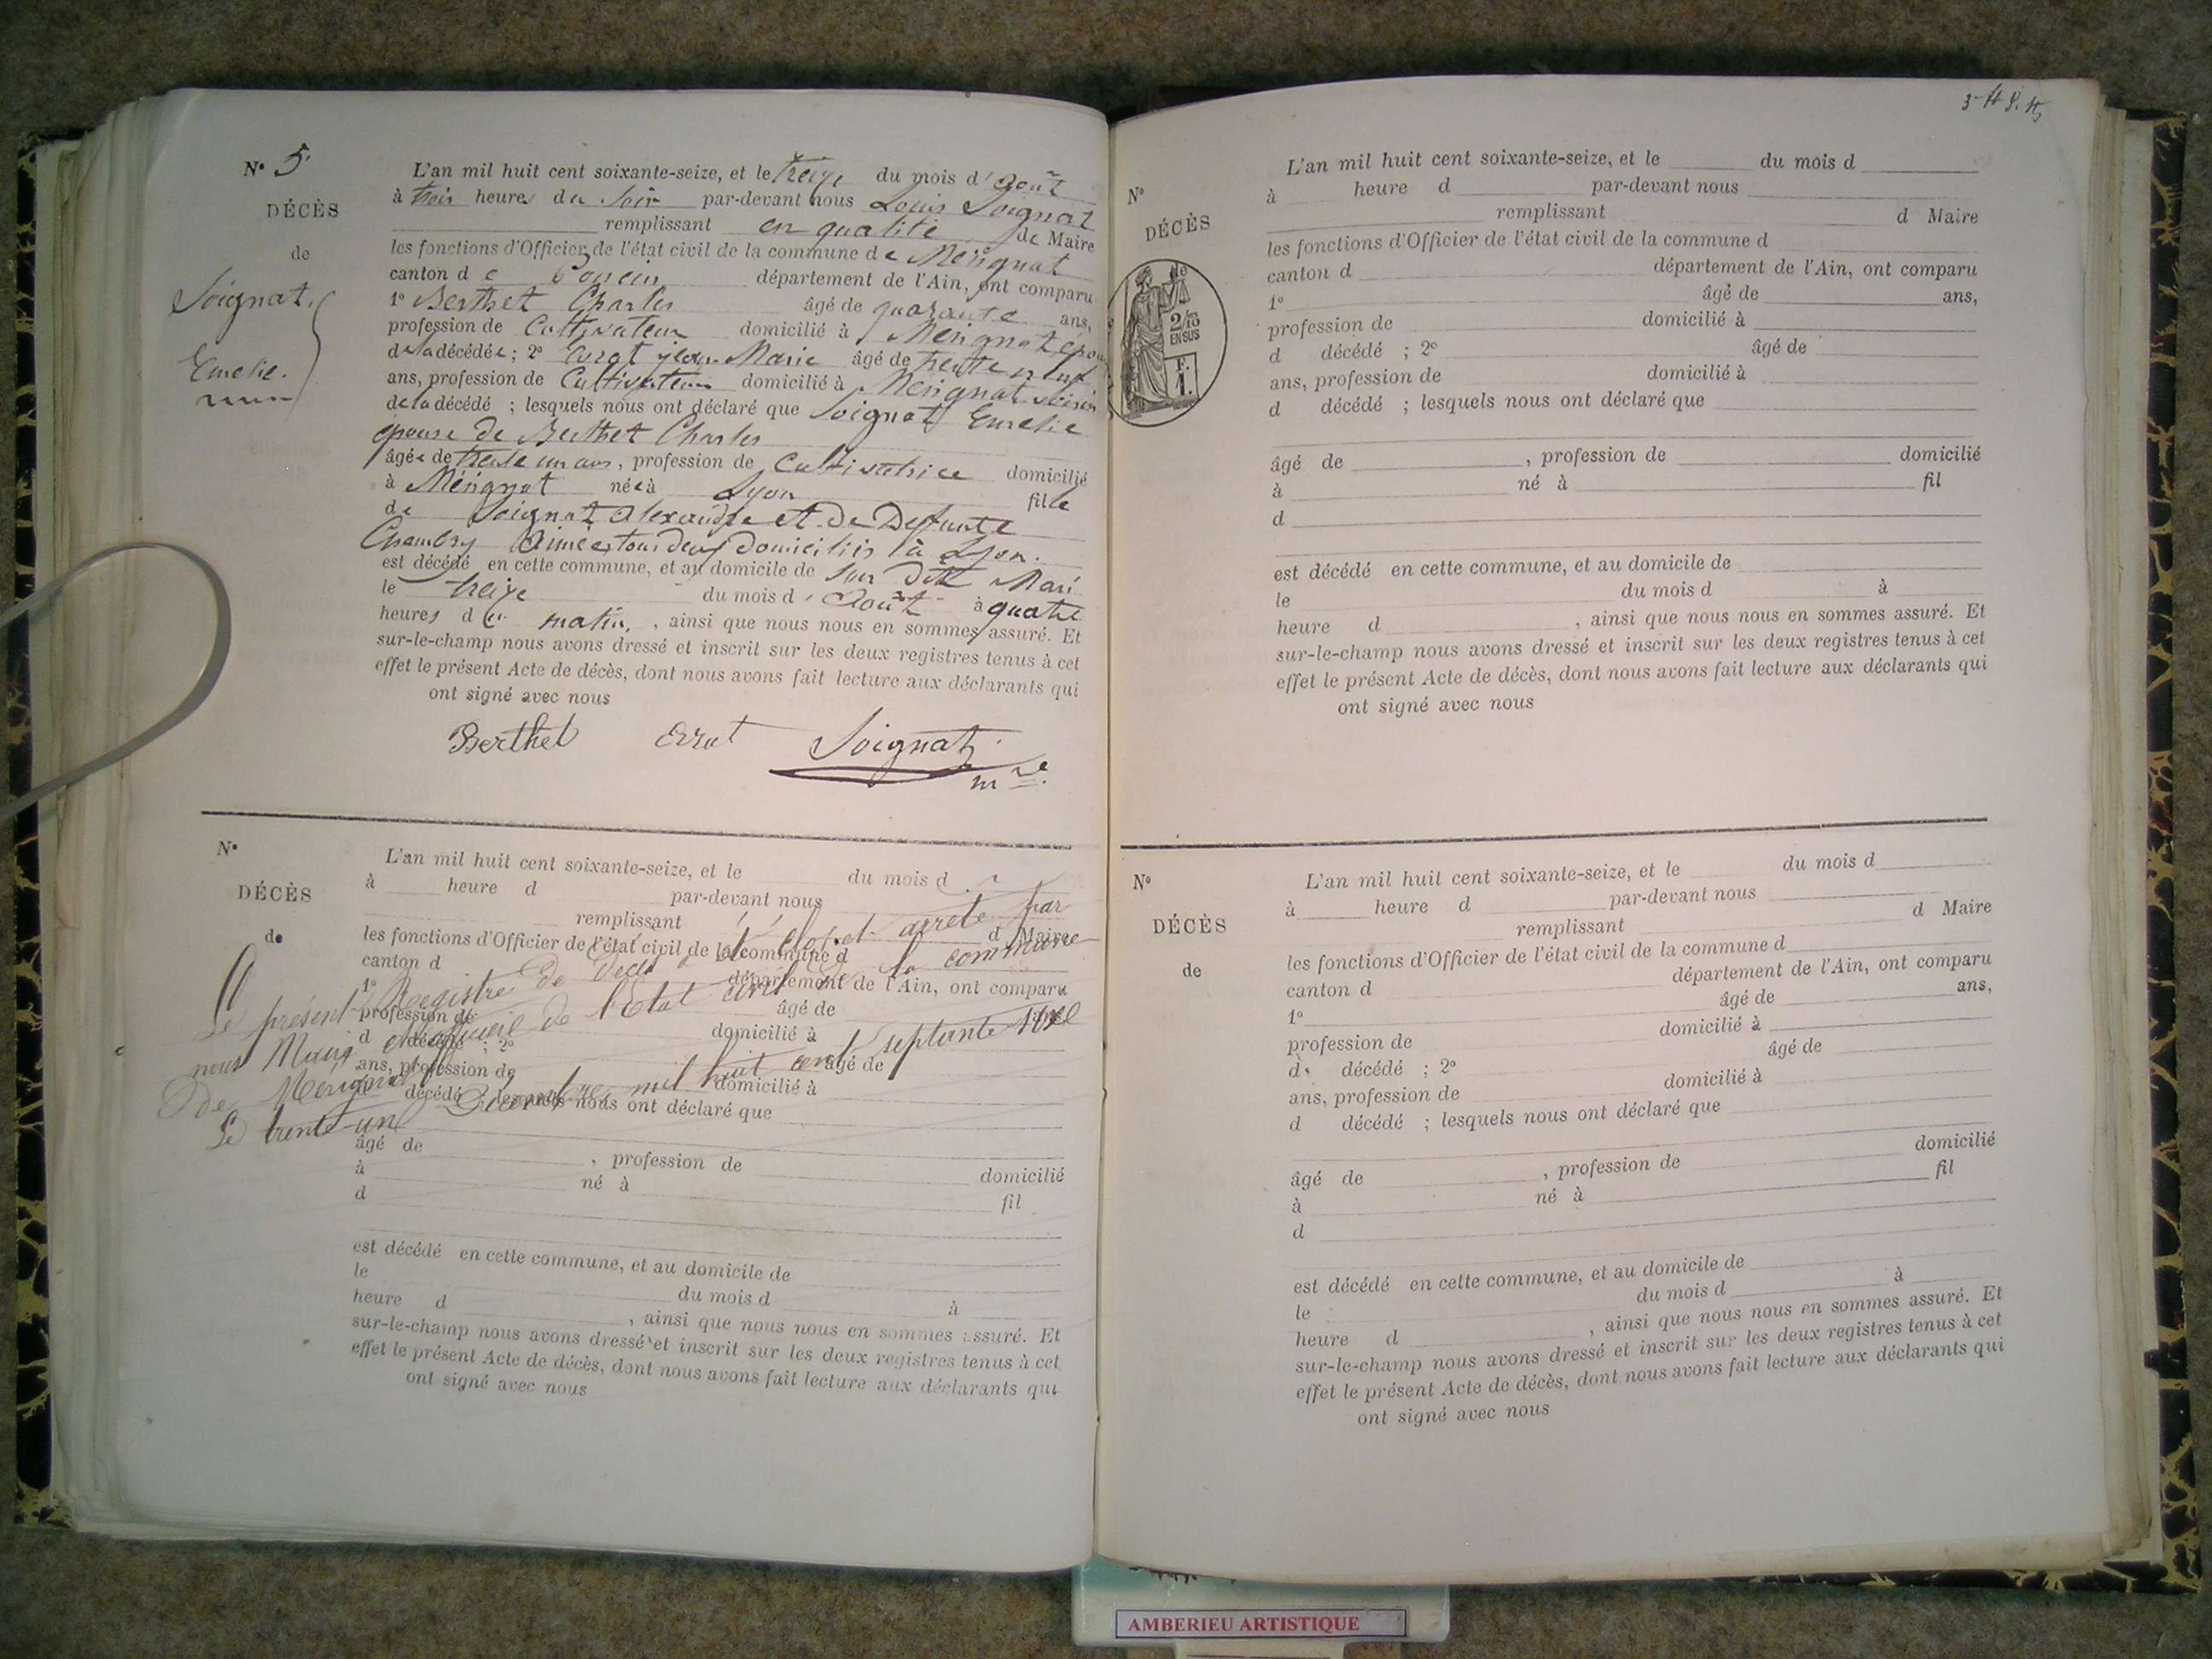 N° 5
DÉCÈS
de
Soignat
Emelie.
L'an mil huit cent soixante-seize, et le treize du mois d'août
à trois heures du soir par-devant nous Louis Soignat
remplissant en qualité de Maire
les fonctions d'Officier de l'état civil de la commune de Mérignat
canton de Poncin département de l'Ain, ont comparu
1° Berthet Charles âgé de quarante ans,
profession de Cultivateur domicilié à Mérignat épou
de la décédée ; 2° Errat jean Marie âgé de trente neuf
ans, profession de Cultivateur domicilié à Mérignat voisin
de la décédé ; lesquels nous ont déclaré que Soignat Emelie
épouse de Berthet Charles
âgée de trente un ans, profession de Cultivatrice domicilié
à Mérignat née à Lyon fille
de Soignat Alexandre et de Defunte
Chambry Aimée, tous deux domiciliés à Lyon.
est décédé en cette commune, et au domicile de son dit Mari
le treize du mois d'Août à quatre
heures du matin, ainsi que nous nous en sommes assuré. Et
sur-le-champ nous avons dressé et inscrit sur les deux registres tenus à cet
effet le présent Acte de décès, dont nous avons fait lecture aux déclarants qui
ont signé avec nous
Berthet Errat Soignat
mre.
N°
DÉCÈS
de
L'an mil huit cent soixante-seize, et le du mois d
à heure d par-devant nous
remplissant d Maire
les fonctions d'Officier de l'état civil de la commune d
canton d département de l'Ain, ont comparu
1° âgé de ans,
profession de domicilié à
d décédé ; 2° âgé de
ans, profession de domicilié à
d décédé ; lesquels nous ont déclaré que
Le présent Registre de décès a été clos et arrêté par
nous Maire et officier de l'Etat civil de la commune
de Mérignat
Le trente-un Décembre mil huit cent septante six
âgé de , profession de domicilié
à né à fil
d
est décédé en cette commune, et au domicile de
le du mois d à
heure d , ainsi que nous nous en sommes assuré. Et
sur-le-champ nous avons dressé et inscrit sur les deux registres tenus à cet
effet le présent Acte de décès, dont nous avons fait lecture aux déclarants qui
ont signé avec nous
N°
DÉCÈS
de
2/10
EN SUS
F.
1.
L'an mil huit cent soixante-seize, et le du mois d
à heure d par-devant nous
remplissant d Maire
les fonctions d'Officier de l'état civil de la commune d
canton d département de l'Ain, ont comparu
1° âgé de ans,
profession de domicilié à
d décédé ; 2° âgé de
ans, profession de domicilié à
d décédé ; lesquels nous ont déclaré que
âgé de , profession de domicilié
à né à fil
d
est décédé en cette commune, et au domicile de
le du mois d à
heure d , ainsi que nous nous en sommes assuré. Et
sur-le-champ nous avons dressé et inscrit sur les deux registres tenus à cet
effet le présent Acte de décès, dont nous avons fait lecture aux déclarants qui
ont signé avec nous
N°
DÉCÈS
de
L'an mil huit cent soixante-seize, et le du mois d
à heure d par-devant nous
remplissant d Maire
les fonctions d'Officier de l'état civil de la commune d
canton d département de l'Ain, ont comparu
1° âgé de ans,
profession de domicilié à
d décédé ; 2° âgé de
ans, profession de domicilié à
d décédé ; lesquels nous ont déclaré que
âgé de , profession de domicilié
à né à fil
d
est décédé en cette commune, et au domicile de
le du mois d à
heure d , ainsi que nous nous en sommes assuré. Et
sur-le-champ nous avons dressé et inscrit sur les deux registres tenus à cet
effet le présent Acte de décès, dont nous avons fait lecture aux déclarants qui
ont signé avec nous
AMBERIEU ARTISTIQUE